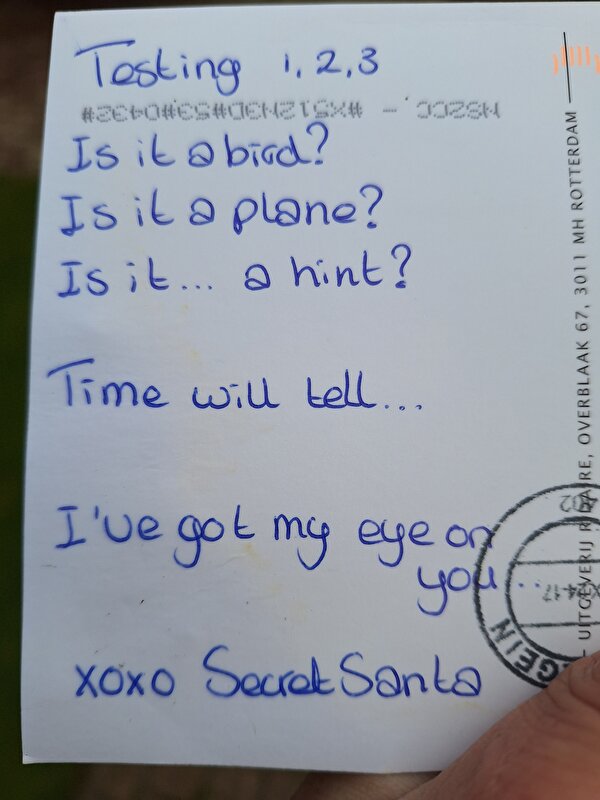 Testing 1, 2, 3
Is it a bird?
Is it a plane?
Is it... a hint?
Time will tell...
I've got my eye on
you...
xoxo Secret Santa
UITGEVERIJ OVERBLAAK 67, 3011 MH ROTTERDAM —